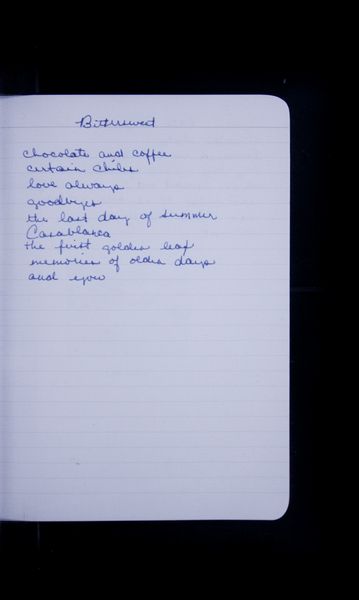 Bittersweet
chocolate and coffee
certain chiles
love always
goodbyes
the last day of summer
Casablanca
the first golden leaf
memories of older days
and you